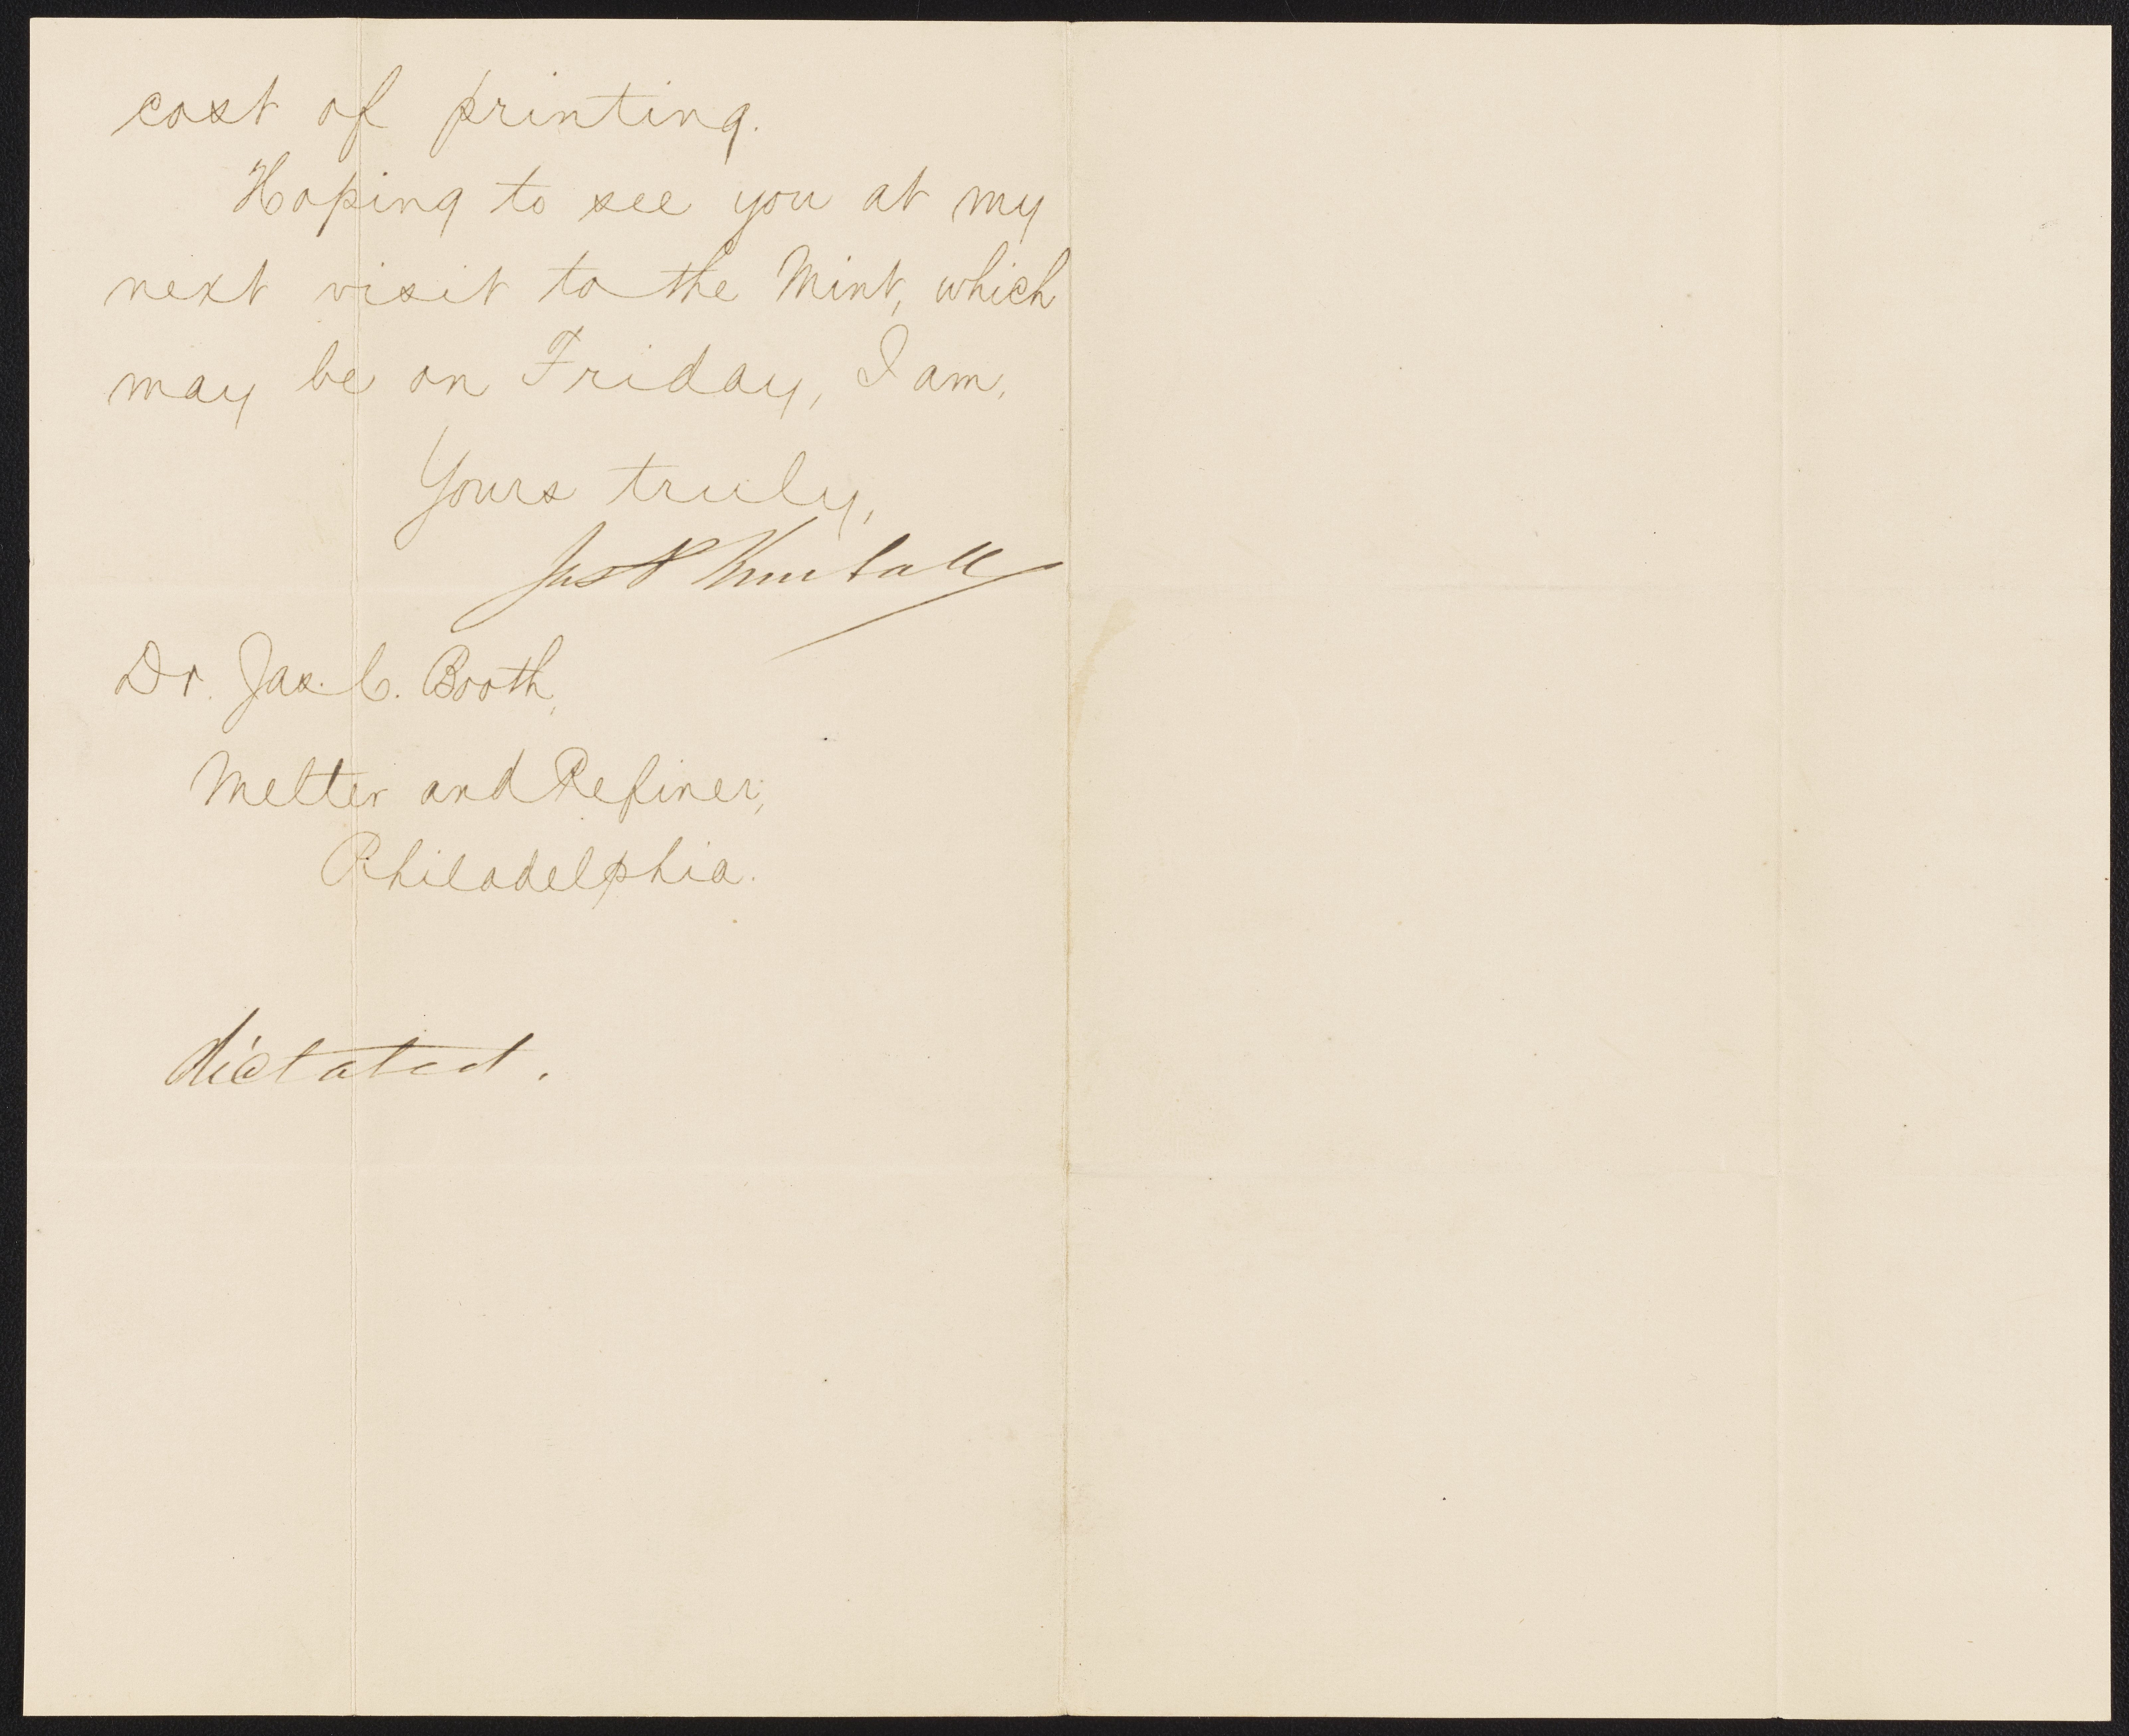 cost of printing.
Hoping to see you at my
next visit to the Mint, which
may be on Friday, I am,
Yours truly,
Jas P Kimball
Dr. Jas. C. Booth,
Melter and Refiner,
Philadelphia.
dictated.